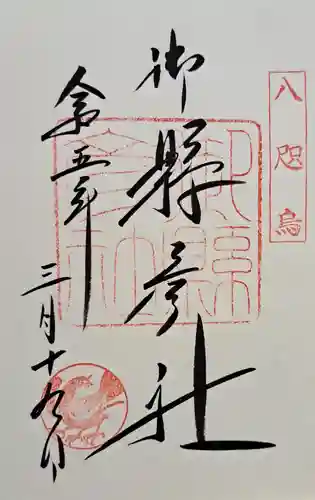 八咫烏
御縣彦社
令五年
三月十九日